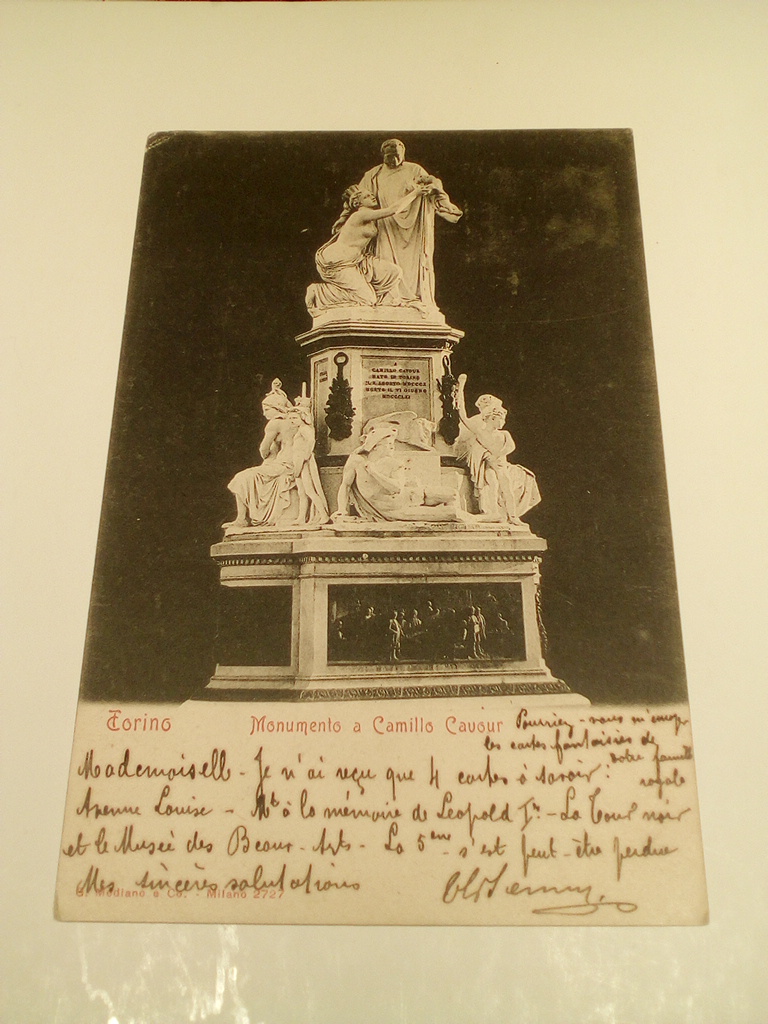 A
CAMILLO CAVOUR
NATO IN TORINO
IL X AGOSTO MDCCCX
MORTO IL VI GIUGNO
MDCCCLXI
Torino
Monumento a Camillo Cavour
Pourriez-vous m'envoyer
les cartes fantaisies de
votre famille
royale
Mademoiselle - Je n'ai reçu que 4 cartes à savoir:
Avenue Louise - Mt à la mémoire de Leopold Ir - La Tour noir
et le Museé des Beaux-Arts - La 5eme s'est peut-être perdue
Mes sincères salutations
G. Modiano e Co. - Milano 2727